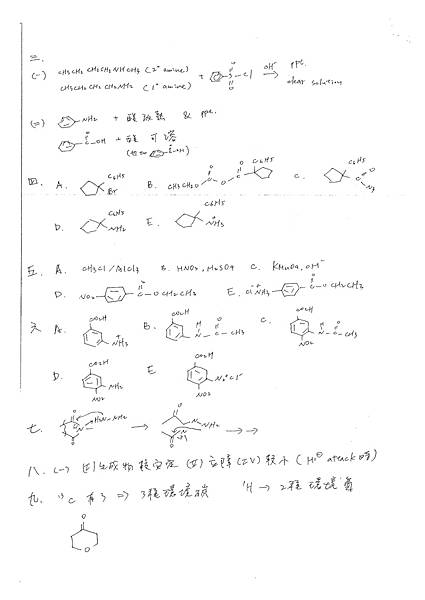 三.
(一) CH3CH2CH2CH2NHCH3 (2° amine) + S Cl OH⁻ → ppt.
CH3CH2CH2CH2NH2 (1° amine) clear solution
(二) NH2 + 酸 & ppt.
C-OH + 酸 可溶
四. A. C6H5 Br B. CH3CH2O C O C C6H5 C. C6H5 C N3
D. C6H5 NH2 E. C6H5 NH3
五. A. CH3Cl/AlCl3 B. HNO3, H2SO4 C. KMnO4, OH⁻
D. NO2 C-OCH2CH3 E. Cl NH3 C-OCH2CH3
六 A. CO2H NH3 B. CO2H H N-C-CH3 C. CO2H H N-C-CH3 NO2
D. CO2H NH2 NO2 E. CO2H N2⁺Cl⁻ NO2
七. O H2N-NH2 → O N NH2 →→
八. (一) 生成物較安定 (二) 立障 較小 (H⊖ attack 時)
九. ¹³C 有3 => 3種環境碳 ¹H → 2種環境氫
O
O